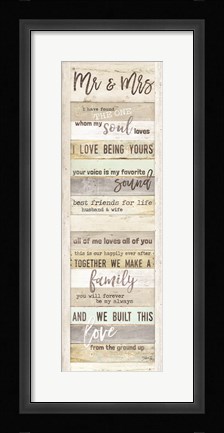 Mr & Mrs
I have found
THE ONE
whom my soul loves
I LOVE BEING YOURS
your voice is my favorite
sound
best friends for life
husband & wife
all of me loves all of you
this is our happily ever after
TOGETHER WE MAKE A
family
you will forever
be my always
AND WE BUILT THIS
love
from the ground up